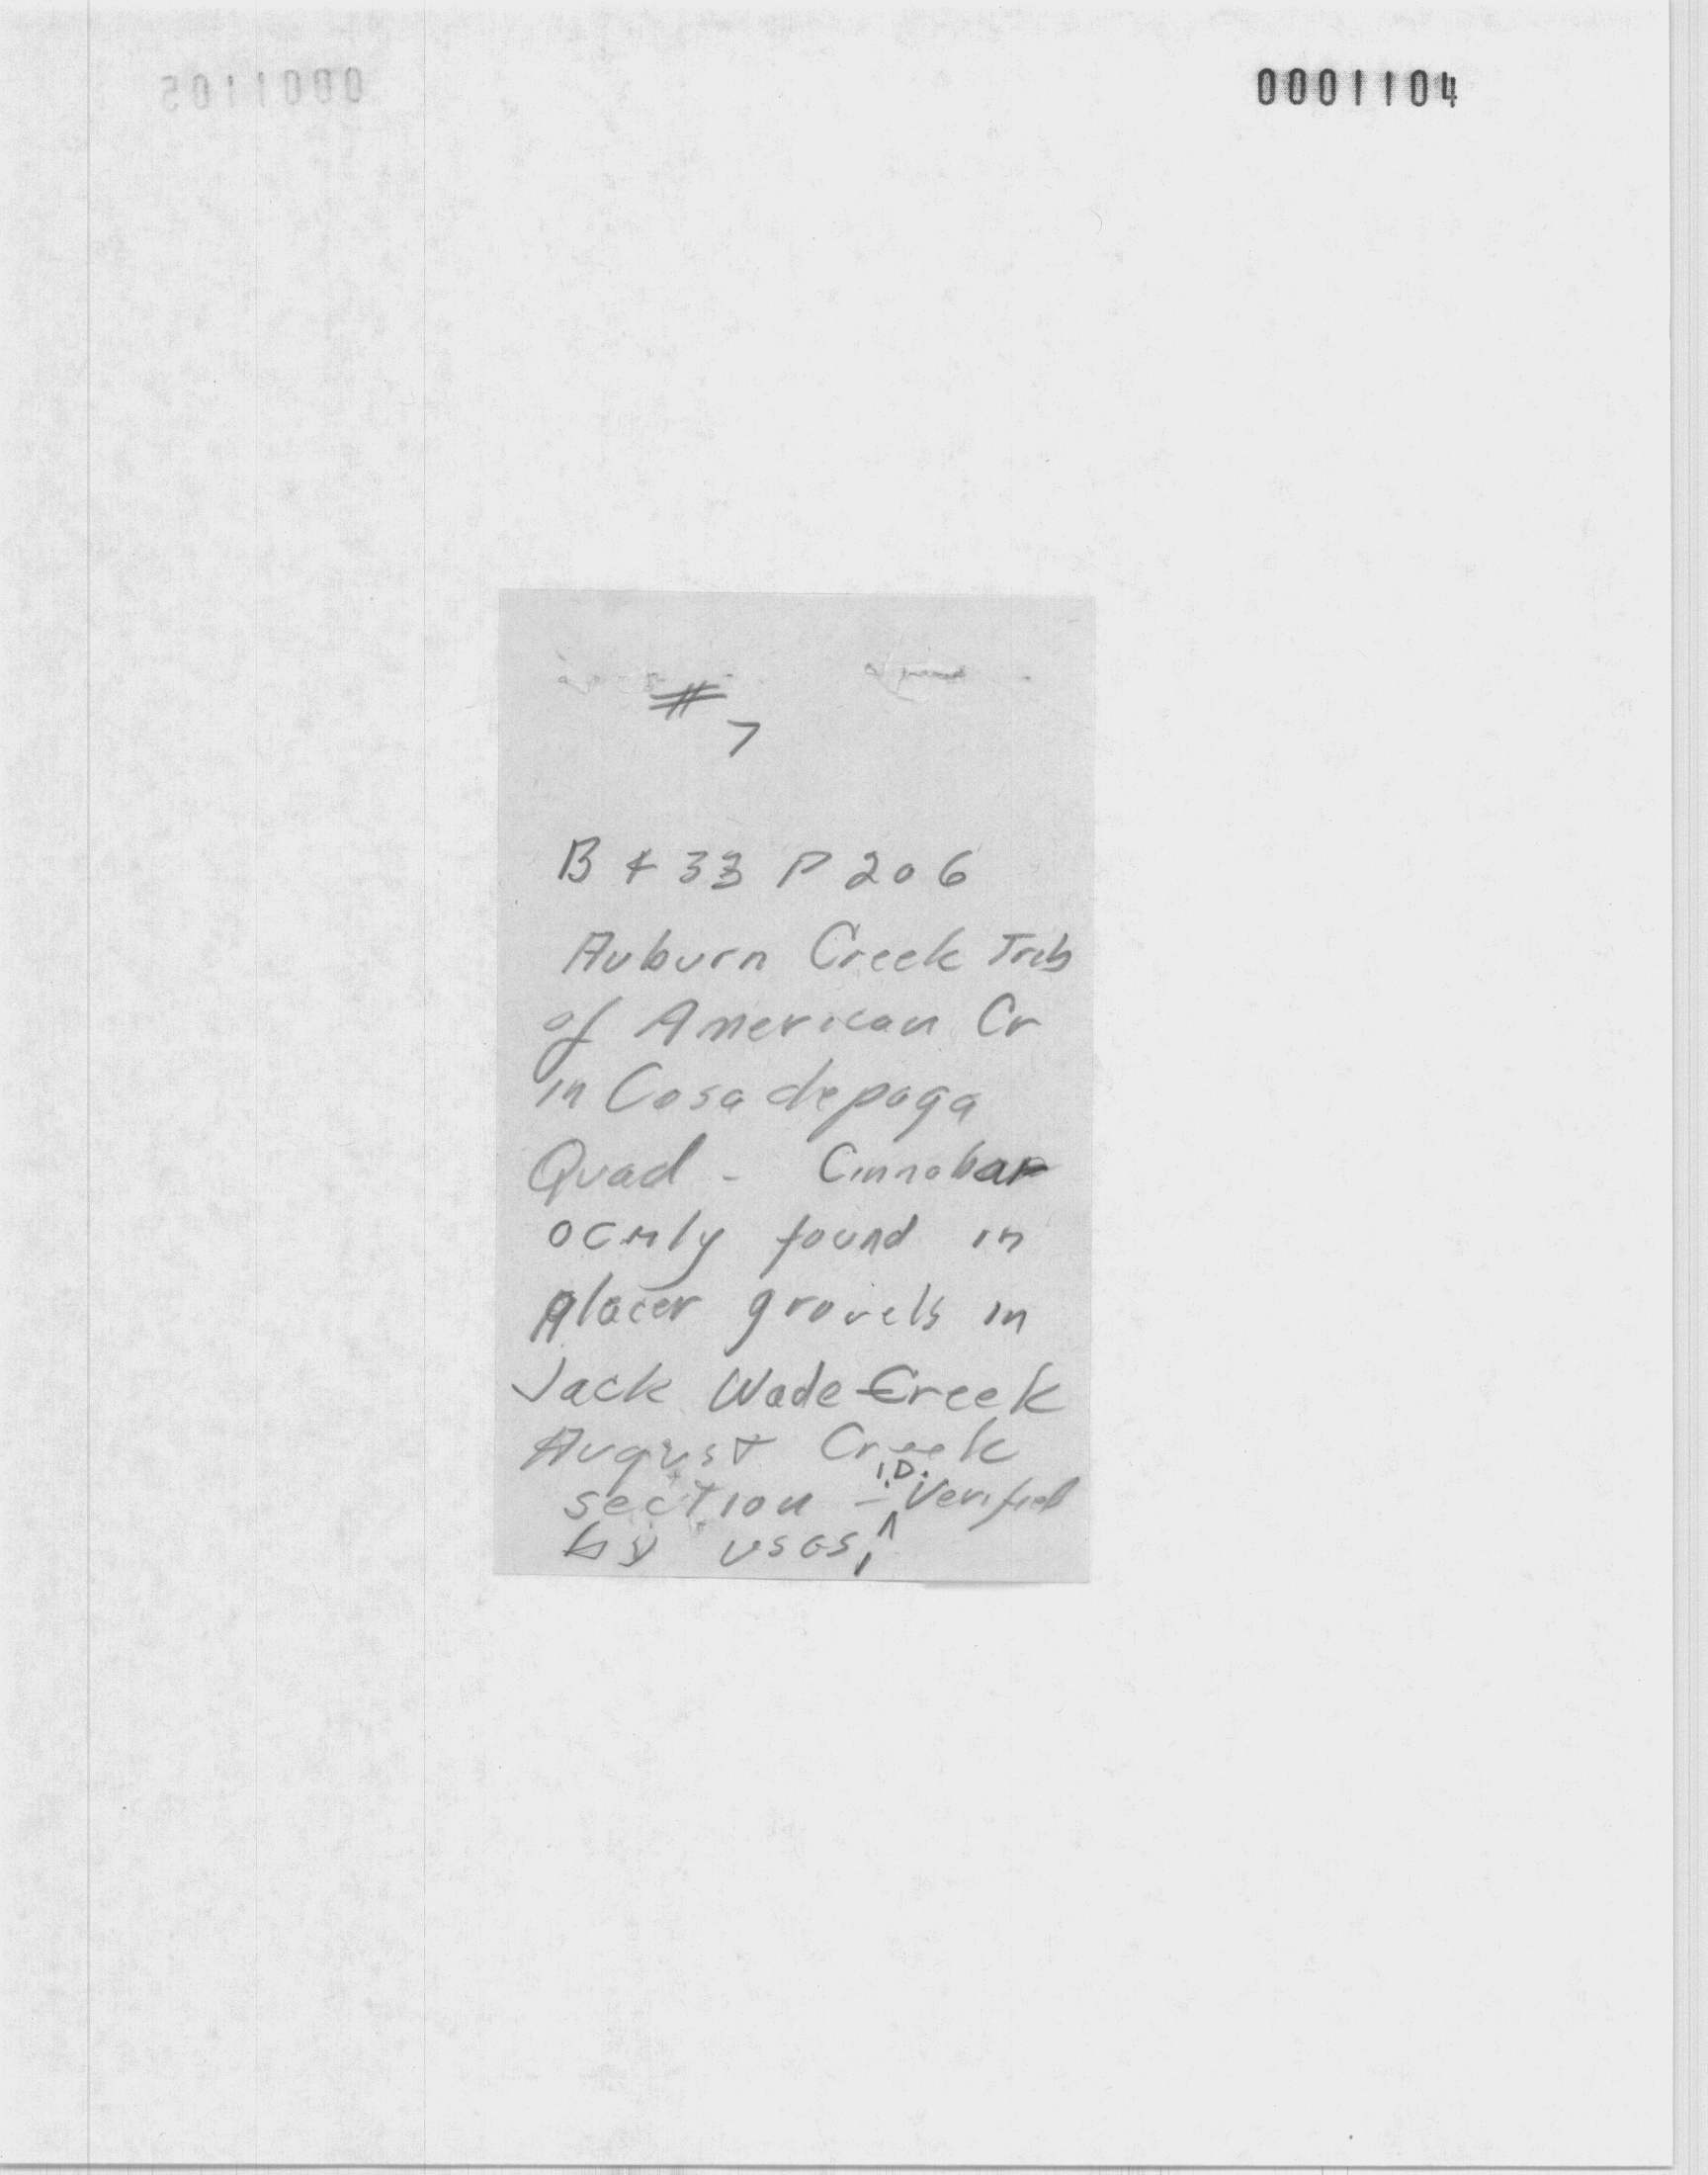 0001104
#
7
B 433 P 206
Auburn Creek Trib
of American Cr
in Casadepaga
Quad - Cinnabar
ocnly found in
placer gravels in
Jack Wade Creek
August Creek
section - I.D. Verified
by USGS,